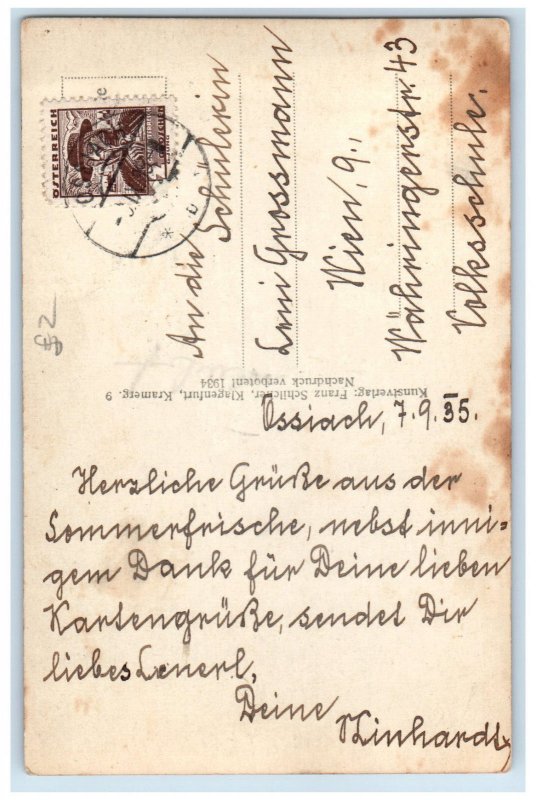 ÖSTERREICH
An die
Schülerin
Leni Grossmann
Wien, 9.,
Währingerstr 43
Volksschule.
$2
Kunstverlag: Franz Schilcher, Klagenfurt, Kramerg. 9
Nachdruck verboten! 1934
Ossiach, 7.9.35.
Herzliche Grüße aus der
Sommerfrische, nebst inni-
gem Dank für Deine lieben
Kartengrüße, sendet Dir
liebes Lenerl,
Deine